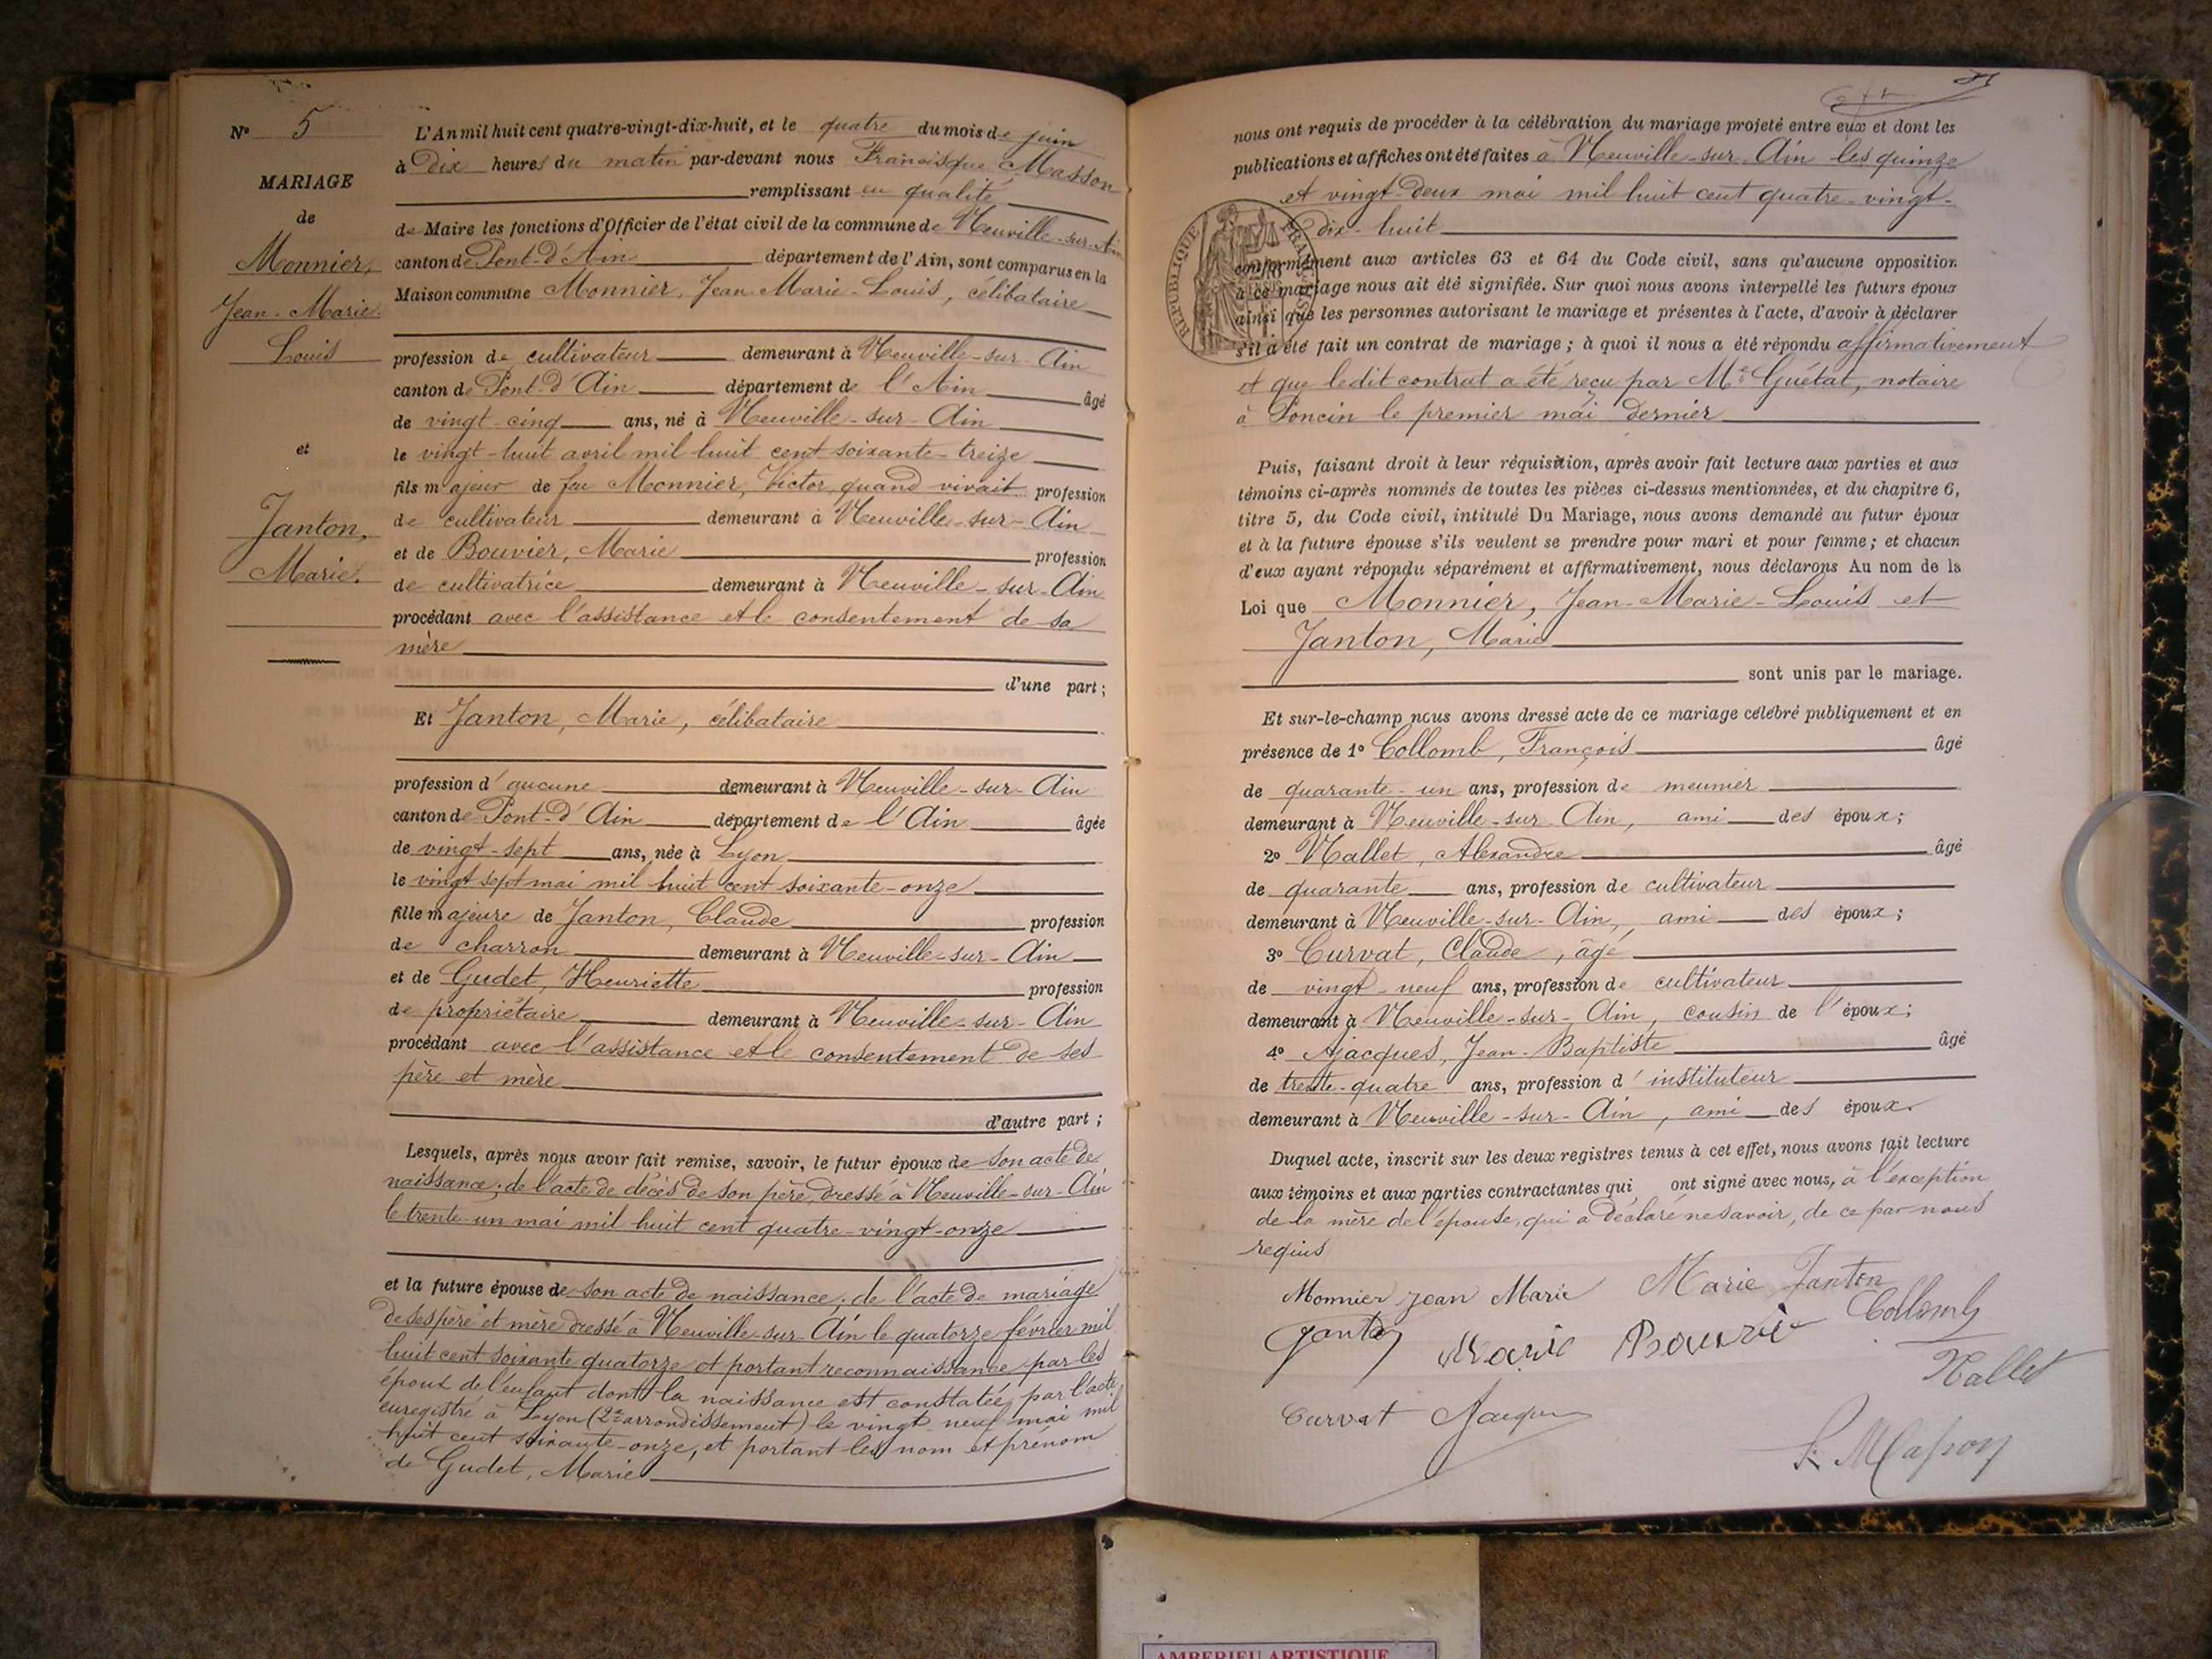 N° 5
MARIAGE
de
Monnier,
Jean-Marie-
Louis
et
Janton,
Marie.
L'An mil huit cent quatre-vingt-dix-huit, et le quatre du mois de juin
à Dix heures du matin par-devant nous Francisque Masson
remplissant en qualité
de Maire les fonctions d'Officier de l'état civil de la commune de Neuville-sur-Ain
canton de Pont-d'Ain département de l'Ain, sont comparus en la
Maison commune Monnier, Jean-Marie-Louis, célibataire
profession de cultivateur demeurant à Neuville-sur-Ain
canton de Pont-d'Ain département de l'Ain âgé
de vingt-cinq ans, né à Neuville-sur-Ain
le vingt-huit avril mil huit cent soixante-treize
fils majeur de feu Monnier, Victor, quand vivait profession
de cultivateur demeurant à Neuville-sur-Ain
et de Bouvier, Marie profession
de cultivatrice demeurant à Neuville-sur-Ain
procédant avec l'assistance et le consentement de sa
mère
d'une part;
Et Janton, Marie, célibataire
profession d'aucune demeurant à Neuville-sur-Ain
canton de Pont-d'Ain département de l'Ain âgée
de vingt-sept ans, née à Lyon
le vingt sept mai mil huit cent soixante-onze
fille majeure de Janton, Claude profession
de charron demeurant à Neuville-sur-Ain
et de Gudet, Henriette profession
de propriétaire demeurant à Neuville-sur-Ain
procédant avec l'assistance et le consentement de ses
père et mère
d'autre part;
Lesquels, après nous avoir fait remise, savoir, le futur époux de son acte de
naissance; de l'acte de décès de son père, dressé à Neuville-sur-Ain
le trente-un mai mil huit cent quatre-vingt-onze
et la future épouse de son acte de naissance; de l'acte de mariage
de ses père et mère dressé à Neuville-sur-Ain le quatorze février mil
huit cent soixante quatorze et portant reconnaissance par les
époux de l'enfant dont la naissance est constatée par l'acte
enregistré à Lyon (2e arrondissement) le vingt-neuf mai mil
huit cent soixante-onze, et portant les nom et prénom
de Gudet, Marie
nous ont requis de procéder à la célébration du mariage projeté entre eux et dont les
publications et affiches ont été faites à Neuville-sur-Ain les quinze
et vingt-deux mai mil huit cent quatre-vingt-
dix-huit
conformément aux articles 63 et 64 du Code civil, sans qu'aucune opposition
à ce mariage nous ait été signifiée. Sur quoi nous avons interpellé les futurs époux
ainsi que les personnes autorisant le mariage et présentes à l'acte, d'avoir à déclarer
s'il a été fait un contrat de mariage; à quoi il nous a été répondu affirmativement
et que ledit contrat a été reçu par Me Guétat, notaire
à Poncin le premier mai dernier
RÉPUBLIQUE FRANÇAISE
Puis, faisant droit à leur réquisition, après avoir fait lecture aux parties et aux
témoins ci-après nommés de toutes les pièces ci-dessus mentionnées, et du chapitre 6,
titre 5, du Code civil, intitulé Du Mariage, nous avons demandé au futur époux
et à la future épouse s'ils veulent se prendre pour mari et pour femme; et chacun
d'eux ayant répondu séparément et affirmativement, nous déclarons Au nom de la
Loi que Monnier, Jean-Marie-Louis et
Janton, Marie
sont unis par le mariage.
Et sur-le-champ nous avons dressé acte de ce mariage célébré publiquement et en
présence de 1° Collomb, François âgé
de quarante-un ans, profession de meunier
demeurant à Neuville-sur-Ain, ami des époux;
2° Nallet, Alexandre âgé
de quarante ans, profession de cultivateur
demeurant à Neuville-sur-Ain, ami des époux;
3° Curvat, Claude, âgé
de vingt-neuf ans, profession de cultivateur
demeurant à Neuville-sur-Ain, cousin de l'époux;
4° Ajacques, Jean-Baptiste âgé
de trente-quatre ans, profession d'instituteur
demeurant à Neuville-sur-Ain, ami des époux.
Duquel acte, inscrit sur les deux registres tenus à cet effet, nous avons fait lecture
aux témoins et aux parties contractantes qui ont signé avec nous, à l'exception
de la mère de l'épouse, qui a déclaré ne savoir, de ce par nous
requis
Monnier jean Marie Marie Janton
Janton Marie Bouvié Collomb
Nallet
Curvat Ajacques
F. Masson
AMBERIEU ARTISTIQUE